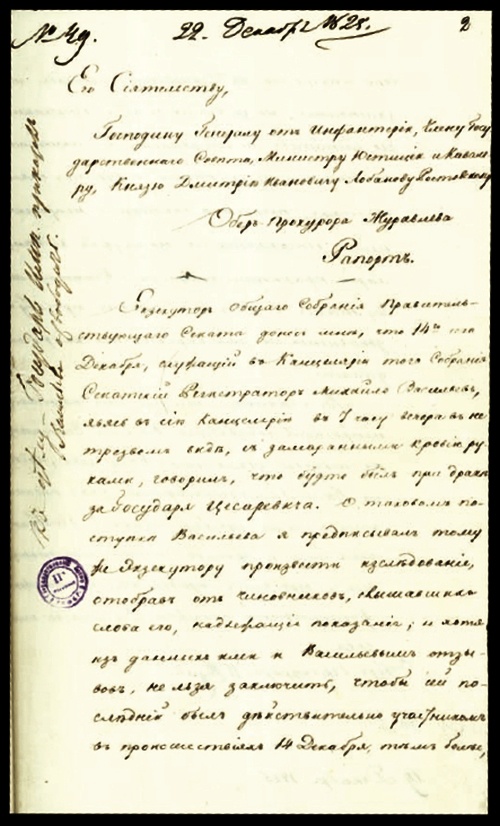 № 49.
22. Декабря 1825.
2
Его Сіятельству,
Господину Генералу отъ Инфантеріи, Члену Госу
дарственнаго Совѣта, Министру Юстиціи и Кавале
ру, Князю Дмитрію Ивановичу Лобанову Ростовскому
Оберъ-Прокурора Журавлева
Рапортъ.
Экзекуторъ Общаго Собранія Правитель-
ствующаго Сената донесъ мнѣ, что 14го
Декабря, служащій въ Канцеляріи того Собранія
Сенатскій Регистраторъ Михайло Васильевъ,
явясь въ сію Канцелярію въ 7 часу вечера въ не
трезвомъ видѣ, съ замаранными кровію ру
ками, говорилъ, что будто былъ при дракѣ
за Государя Цесаревича. О таковомъ по-
ступкѣ Васильева я предписывалъ тому
же Экзекутору произвести изслѣдованіе,
отобравъ отъ чиновниковъ, слышавшихъ
слова его, надлежащія показанія; и хотя
изъ данныхъ ими и Васильевымъ отзы-
вовъ, не льзя заключить, чтобы сей по-
слѣдній былъ дѣйствительно участникомъ
въ происшествіяхъ 14 Декабря, тѣмъ болѣе,
къ дѣлу Государь Имп.
Васильева